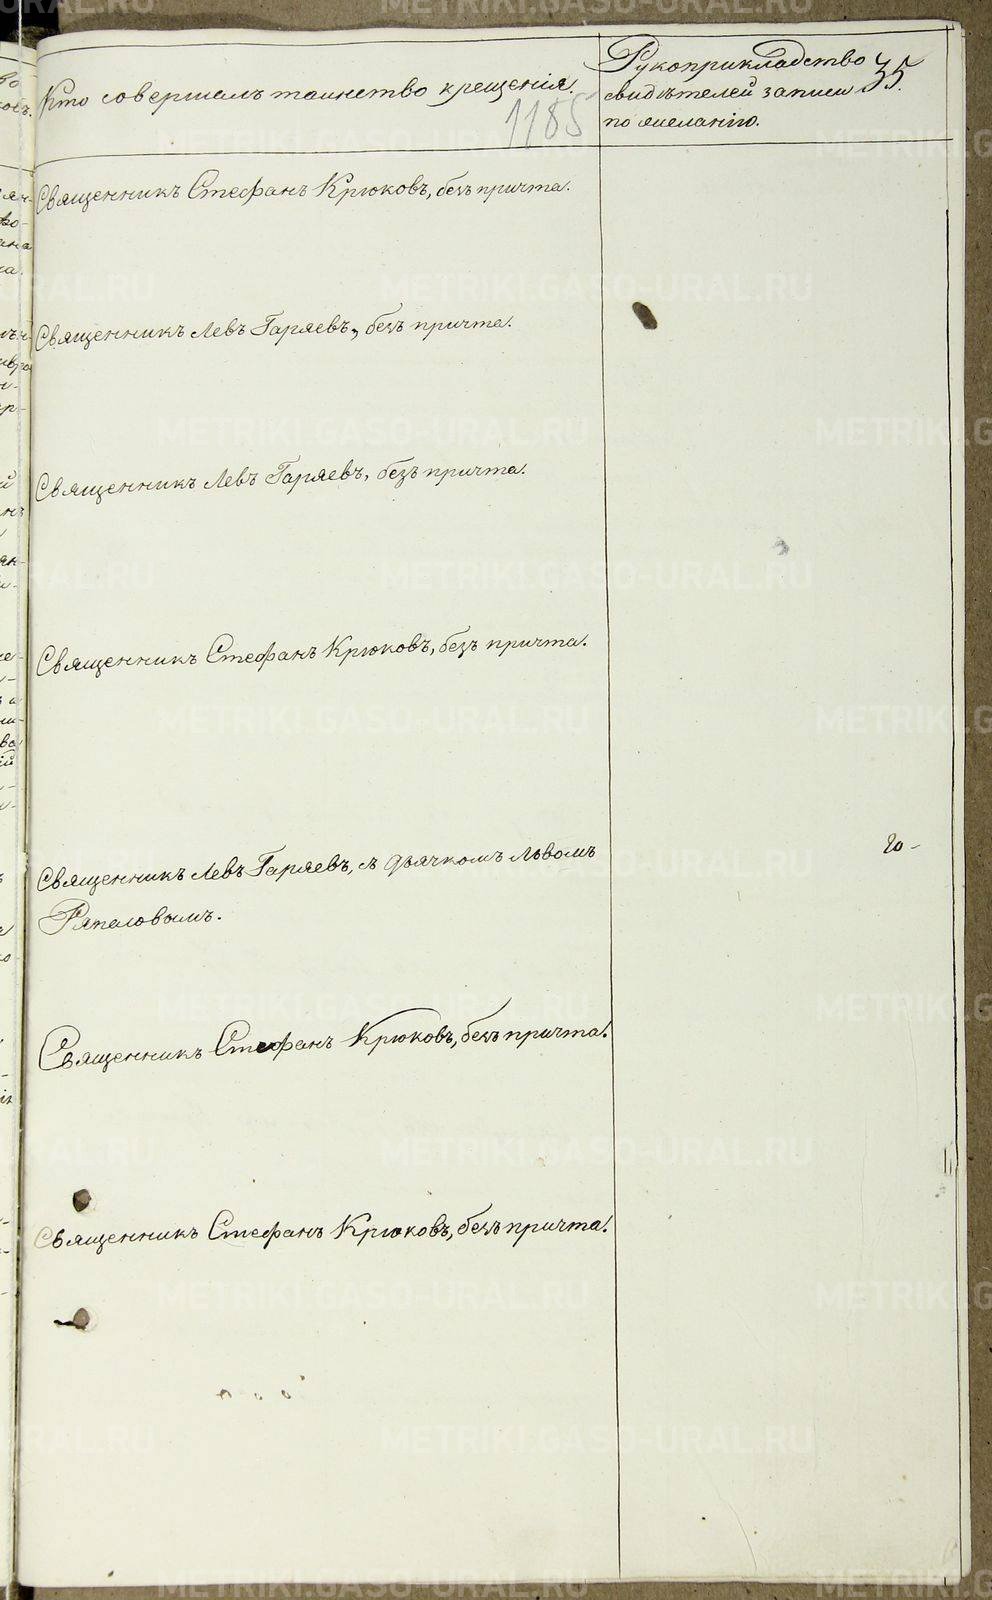 Кто совершалъ таинство крещенія.
1185
Рукоприкладство
свидѣтелей записи
по желанію.
35.
Священникъ Стефанъ Крюковъ, безъ причта.
Священникъ Левъ Гаряевъ, безъ причта.
Священникъ Левъ Гаряевъ, безъ причта.
Священникъ Стефанъ Крюковъ, безъ причта.
Священникъ Левъ Гаряевъ, съ дьячкомъ Львомъ
Ряпаловымъ.
Священникъ Стефанъ Крюковъ, безъ причта.
Священникъ Стефанъ Крюковъ, безъ причта.
METRIKI.GASO-URAL.RU